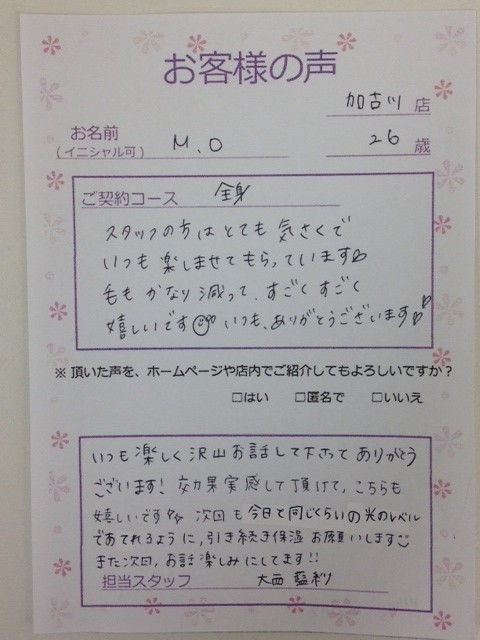 お客様の声
加古川 店
お名前
(イニシャル可) M.O 26 歳
ご契約コース 全身
スタッフの方はとても気さくで
いつも楽しませてもらっています♡
毛もかなり減って、すごくすごく
嬉しいです いつも、ありがとうございます♡
※ 頂いた声を、ホームページや店内でご紹介してもよろしいですか？
□はい □匿名で □いいえ
いつも楽しく沢山お話して下さってありがとう
ございます! 効果実感して頂けて、こちらも
嬉しいです 次回も今日と同じくらいの光のレベル
であてれるように、引き続き保湿お願いします
また次回、お話楽しみにしてます!!
担当スタッフ 大西